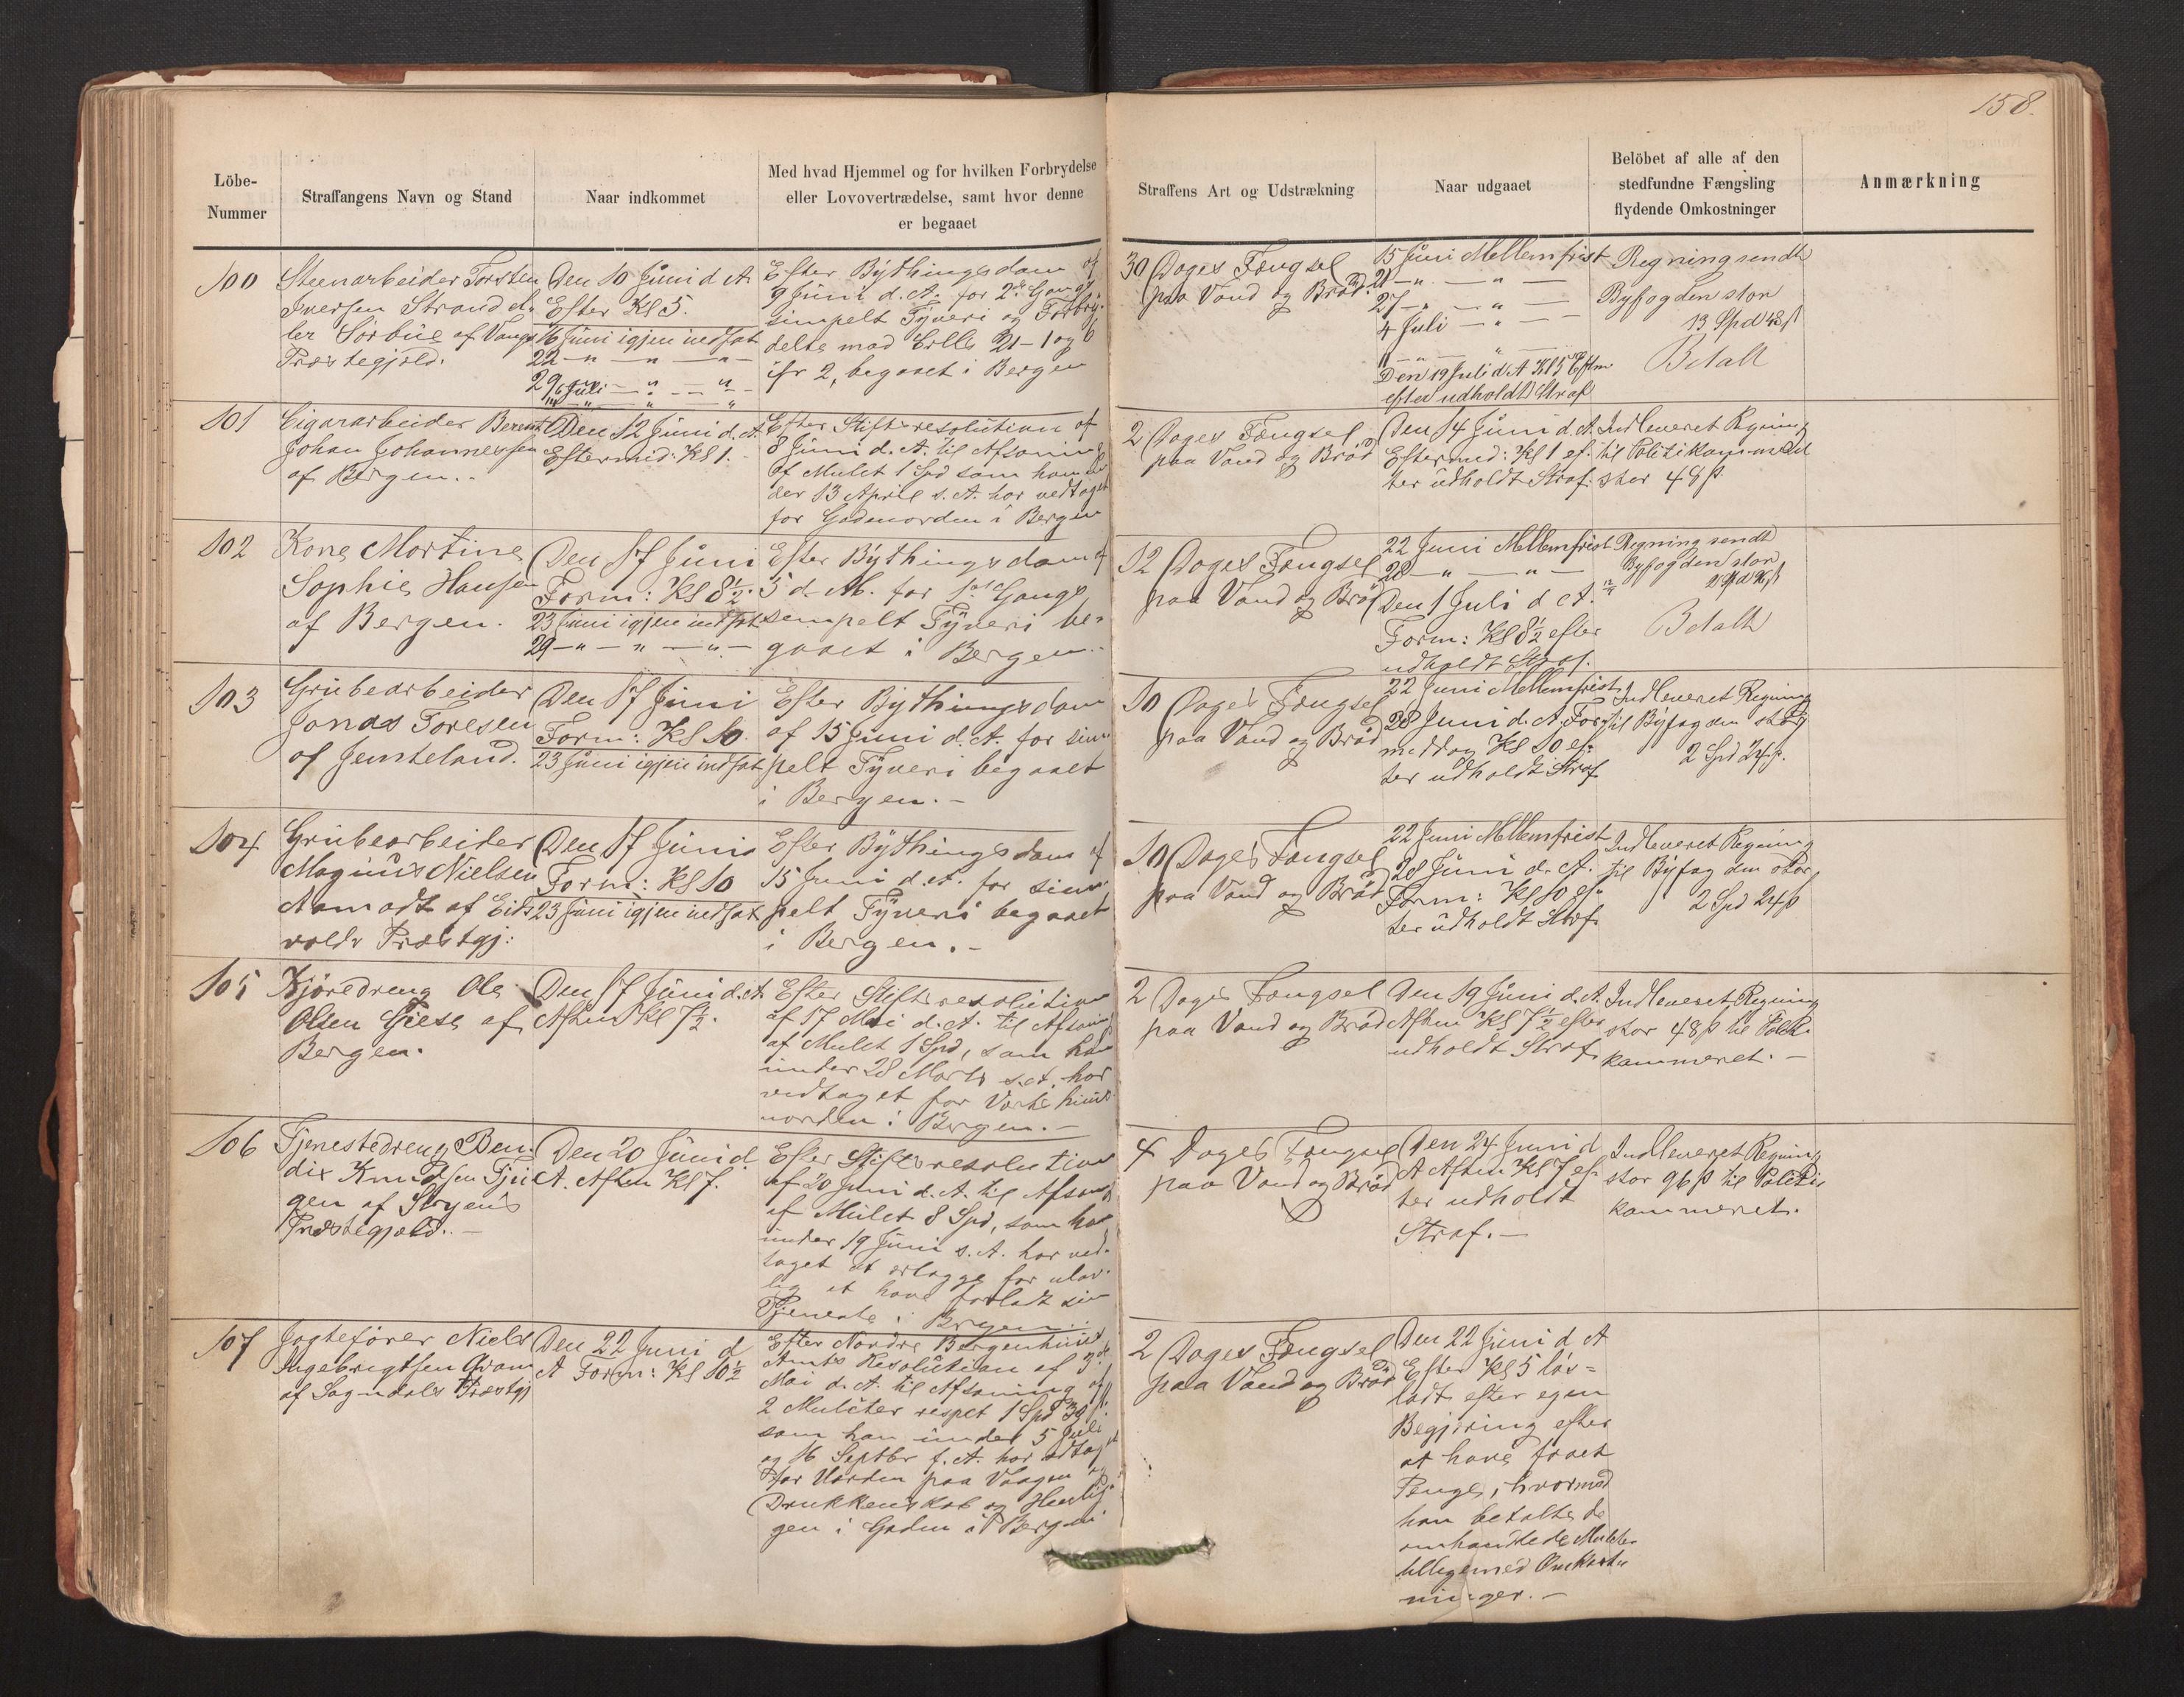 158.
Löbe-
Nummer
Straffangens Navn og Stand
Naar indkommet
Med hvad Hjemmel og for hvilken Forbrydelse
eller Lovovertrædelse, samt hvor denne
er begaaet
Straffens Art og Udstrækning
Naar udgaaet
Belöbet af alle af den
stedfundne Fængsling
flydende Omkostninger
Anmærkning
100
Steenarbeider Torsten
Iversen Strand el-
ler Sörbüe af Vangs
Præstegjeld.
Den 10 Jüni d. A.
Efter Kl 5.
16 Jüni igjen indsat
22 — " — " — " —
29 — " — " — "
Efter Bythingsdom af
9 Jüni d. A. for 2den Gang
simpelt Tyveri og Forbry-
delse mod Crlls 21-1 og 6
ifr 2, begaaet i Bergen
30 Dages Fængsel
paa Vand og Bröd.
15 Jüni Mellemfrist
21 — " — " —
27 — " — " —
4 Juli — " — —
11 — " — " —
Den 19 Juli d. A Kl 5 Eftm
efter udholdt Straf
Regning sendt
Byfogden stor
13 Spd 48 ß
Betalt
101
Cigararbeider Berent
Johan Johannessen
af Bergen..
Den 12 Jüni d. A.
Eftermid: Kl 1. -
Efter Stiftsresolution af
8 Jüni d. A. til Afsoning
af Mulct 1 Spd som han un-
der 13 April s. A. har vedtaget
for Gadeuorden i Bergen
2 Dages Fængsel
paa Vand og Bröd
Den 14 Jüni d. A.
Eftermid: Kl 1 ef-
ter üdholdt Straf.
Indleveret Regning
til Politikammeret
stor 48 ß.
102
Kone Martine
Sophie Hansen
af Bergen.
Den 17 Jüni
Form: Kl 8½.
23 Jüni igjen indsat
29 — " — " — " —
Efter Bythingsdom af
5 d. M. for 1ste Gang
simpelt Tyveri be-
gaaet i Bergen..
12 Dages Fængsel
paa Vand og Bröd
22 Juni Mellemfrist
28 — " — " —
Den 1 Juli d A.
Form: Kl 8½ efter
udholdt Straf.
Regning sendt
Byfogden stor
Betalt
103
Grübearbeider
Jonas Toresen
af Jemteland.
Den 17 Jüni
Form: Kl 10.
23 Jüni igjen indsat
Efter Bythingsdom
af 15 Jüni d. A. for sim-
pelt Tyveri begaaet
i Bergen. -
10 Dages Fængsel
paa Vand og Bröd
22 Juni Mellemfrist
28 Jüni d. A. For-
middag Kl 10 ef-
ter üdholdt Straf
Indleveret Regning
til Byfogden stor
2 Spd 24 ß.
104
Grübearbeider
Magnüs Nielsen
Aamodt af Eids-
volds Præstgj:
Den 17 Jüni
Form: Kl 10
23 Jüni igjen indsat
Efter Bythingsdom af
15 Juni d. A. for sim-
pelt Tyveri begaaet
i Bergen. -
10 Dages Fængsel
paa Vand og Bröd
22 Juni Mellemfrist
28 Jüni d. A.
Form: Kl 10 ef-
ter üdholdt Straf.
Indleveret Regning
til Byfogden stor
2 Spd 24 ß
105
Kjöredreng Ole
Olsen Giese af
Bergen.
Den 17 Jüni d. A.
Aften Kl 7½.
Efter Stiftsresolution
af 17 Mai d. A. til Afsoning
af Mulct 1 Spd, som han
ünder 28 Marts s. A. har
vedtaget for Vertshüus-
uorden i Bergen. -
2 Dages Fængsel
paa Vand og Bröd
Den 19 Jüni d. A.
Aften Kl 7½ efter
udholdt Straf.
Indleveret Regning
stor 48 ß til Politi-
kammeret. -
106
Tjenestedreng Ben-
dix Knudsen Tjü-
gen af Stryens
Præstegjeld.. -
Den 20 Jüni d.
A. Aften Kl 7.
Efter Stiftsresolution
af 20 Juni d. A. til Afsoning
af Mulct 8 Spd, som han
under 19 Jüni s. A. har ved-
taget at erlægge for ulov-
lig at have forladt sin
Tjeneste i Bergen..
4 Dages Fængsel
paa Vand og Bröd
Den 24 Juni d
A Aften Kl 7 ef-
ter udholdt
Straf. -
Indleveret Regning
stor 96 ß til Politi-
kammeret.
107
Jagtefører Niels
Ingebrigtsen Qvam
af Sogndals Præstgj
Den 22 Juni d
A Form: Kl 10½
Efter Nordre Bergenhuus
Amts Resolution af 3de
Mai d. A. til Afsoning af
2 Mulcter respct 1 Spd
som han ünder 5 Juli
og 16 Septbr f. A. har vedtaget
for Uorden paa Vaagen og
Drukkenskab og
gen i Gaden i Bergen
2 Dages Fængsel
paa Vand og Bröd
Den 22 Jüni d A
Efter Kl 5 lös-
ladt efter egen
Begjæring efter
at have faaet
Penge, hvormed
han betalte de
omhandlede Mulcter
tilligemed Omkost-
ninger. -